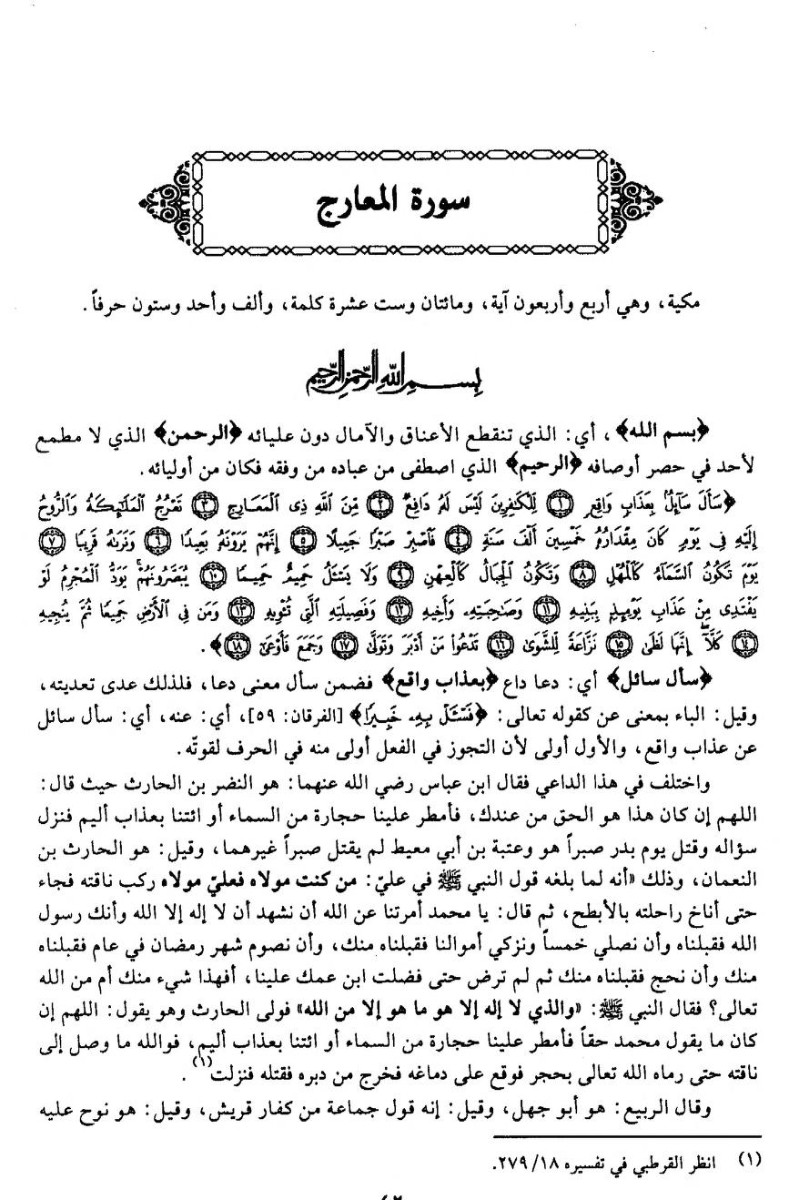 سورة المعارج
مكية، وهي أربع وأربعون آية، ومائتان وست عشرة كلمة، وألف وأحد وستون حرفاً.
بسم الله الرحمن الرحيم
﴿بسم الله﴾، أي: الذي تنقطع الأعناق والآمال دون عليائه ﴿الرحمن﴾ الذي لا مطمع
لأحد في حصر أوصافه ﴿الرحيم﴾ الذي اصطفى من عباده من وفقه فكان من أوليائه.
﴿سَأَلَ سَآئِلٌ بِعَذَابٍ وَاقِعٍ ﴿١﴾ لِّلْكَٰفِرِينَ لَيْسَ لَهُۥ دَافِعٌ ﴿٢﴾ مِّنَ ٱللَّهِ ذِى ٱلْمَعَارِجِ ﴿٣﴾ تَعْرُجُ ٱلْمَلَٰٓئِكَةُ وَٱلرُّوحُ
إِلَيْهِ فِى يَوْمٍ كَانَ مِقْدَارُهُۥ خَمْسِينَ أَلْفَ سَنَةٍ ﴿٤﴾ فَٱصْبِرْ صَبْرًا جَمِيلًا ﴿٥﴾ إِنَّهُمْ يَرَوْنَهُۥ بَعِيدًا ﴿٦﴾ وَنَرَىٰهُ قَرِيبًا ﴿٧﴾
يَوْمَ تَكُونُ ٱلسَّمَآءُ كَٱلْمُهْلِ ﴿٨﴾ وَتَكُونُ ٱلْجِبَالُ كَٱلْعِهْنِ ﴿٩﴾ وَلَا يَسْـَٔلُ حَمِيمٌ حَمِيمًا ﴿١٠﴾ يُبَصَّرُونَهُمْ يَوَدُّ ٱلْمُجْرِمُ لَوْ
يَفْتَدِى مِنْ عَذَابِ يَوْمِئِذٍۭ بِبَنِيهِ ﴿١١﴾ وَصَٰحِبَتِهِۦ وَأَخِيهِ ﴿١٢﴾ وَفَصِيلَتِهِ ٱلَّتِى تُـْٔوِيهِ ﴿١٣﴾ وَمَن فِى ٱلْأَرْضِ جَمِيعًا ثُمَّ يُنجِيهِ
﴿١٤﴾ كَلَّآ إِنَّهَا لَظَىٰ ﴿١٥﴾ نَزَّاعَةً لِّلشَّوَىٰ ﴿١٦﴾ تَدْعُوا۟ مَنْ أَدْبَرَ وَتَوَلَّىٰ ﴿١٧﴾ وَجَمَعَ فَأَوْعَىٰٓ ﴿١٨﴾﴾.
﴿سأل سائل﴾ أي: دعا داع ﴿بعذاب واقع﴾ فضمن سأل معنى دعا، فلذلك عدى تعديته،
وقيل: الباء بمعنى عن كقوله تعالى: ﴿فَسْـَٔلْ بِهِۦ خَبِيرًا﴾ [الفرقان: ٥٩]، أي: عنه، أي: سأل سائل
عن عذاب واقع، والأول أولى لأن التجوز في الفعل أولى منه في الحرف لقوتّه.
واختلف في هذا الداعي فقال ابن عباس رضي الله عنهما: هو النضر بن الحارث حيث قال:
اللهم إن كان هذا هو الحق من عندك، فأمطر علينا حجارة من السماء أو ائتنا بعذاب أليم فنزل
سؤاله وقتل يوم بدر صبراً هو وعتبة بن أبي معيط لم يقتل صبراً غيرهما، وقيل: هو الحارث بن
النعمان، وذلك «أنه لما بلغه قول النبي ﷺ في عليّ: من كنت مولاه فعليّ مولاه ركب ناقته فجاء
حتى أناخ راحلته بالأبطح، ثم قال: يا محمد أمرتنا عن الله أن نشهد أن لا إله إلا الله وأنك رسول
الله فقبلناه وأن نصلي خمساً ونزكي أموالنا فقبلناه منك، وأن نصوم شهر رمضان في عام فقبلناه
منك وأن نحج فقبلناه منك ثم لم ترض حتى فضلت ابن عمك علينا، أفهذا شيء منك أم من الله
تعالى؟ فقال النبي ﷺ: «والذي لا إله إلا هو ما هو إلا من الله» فولى الحارث وهو يقول: اللهم إن
كان ما يقول محمد حقاً فأمطر علينا حجارة من السماء أو ائتنا بعذاب أليم، فوالله ما وصل إلى
ناقته حتى رماه الله تعالى بحجر فوقع على دماغه فخرج من دبره فقتله فنزلت(١).
وقال الربيع: هو أبو جهل، وقيل: إنه قول جماعة من كفار قريش، وقيل: هو نوح عليه
(١) انظر القرطبي في تفسيره ١٨/٢٧٩.